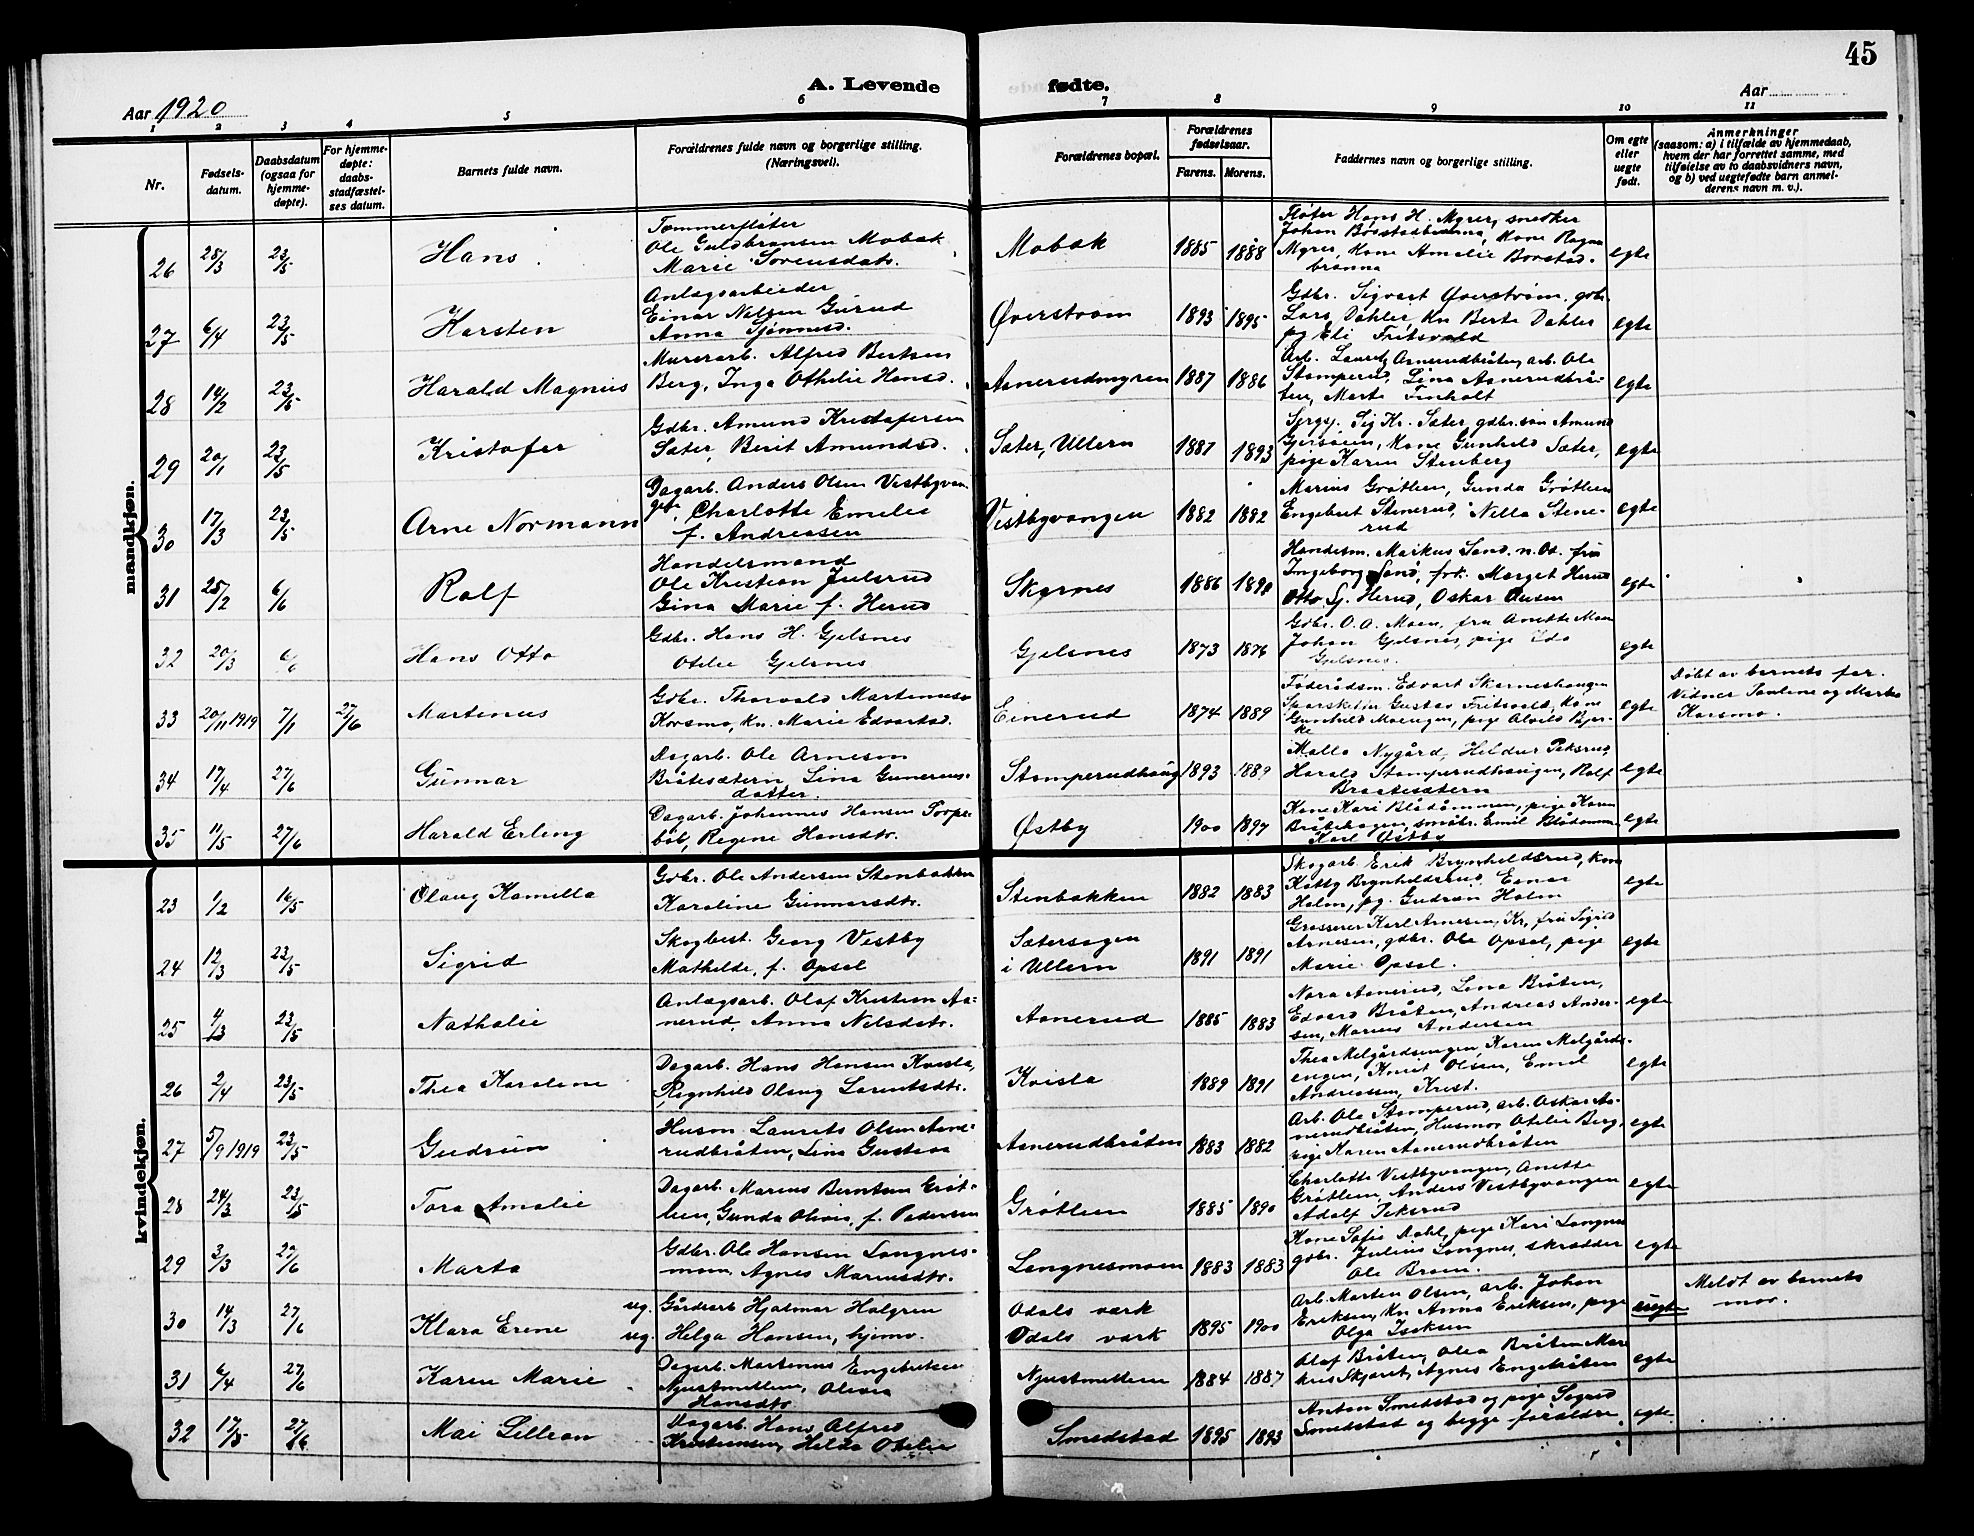 45
A. Levende fødte.
Aar 1920
Aar
1 2 3 4 5 6 7 8 9 10 11
Nr.
Fødsels-
datum.
Daabsdatum
(ogsaa for
hjemme-
døpte).
For hjemme-
døpte:
daabs-
stadfæstel-
ses datum.
Barnets fulde navn.
Forældrenes fulde navn og borgerlige stilling.
(Næringsvei).
Forældrenes bopæl.
Forældrenes
fødselsaar.
Farens. Morens.
Faddernes navn og borgerlige stilling.
Om egte
eller
uegte
født.
Anmerkninger
(saasom: a) i tilfælde av hjemmedaab,
hvem der har forrettet samme, med
tilføielse av to daabsvidners navn,
og b) ved uegtefødte barn anmel-
derens navn m. v.).
mandkjøn.
26 28/3 23/5 Hans
Tømmerfløter
Ole Guldbransen Mobæk
Marie Sørensdatr.
Mobæk 1885 1888
Fløter Hans H. Myrer, snedker
Johan Borstadbrænna, Kone Ragna
Myrer, Kone Amelie Borstad-
brænna
egte
27 6/4 23/5 Karsten
Anlægsarbeider
Einar Nilsen Gurud
Anna Tjønnesd.
Øverstrøm 1893 1895
Gdbr. Sigvart Øverstrøm, gdbr.
Lars Dahler, Kn Berte Dahler
pg Eli Fritsvold
egte
28 14/2 23/5 Harald Magnus
Murerarb. Alfred Bertsen
Berg, Inga Othelie Hansd.
Asnerudmyren 1887 1886
Arb. Laurits Asnerudbråten, arb. Ole
Stomperud, Lina Asnerudbrå-
ten, Marte Finholt
egte
29 20/1 23/5 Kristofer
Gdbr. Amund Kristofersen
Sæter, Berit Amundsd.
Sæter, Ullern 1887 1893
Sergj. Sig Kr. Sæter, gdbr.søn Amund
Gjersøien, Kone Gunhild Sæter,
pige Karen Stenberg
egte
30 17/3 23/5 Arne Normann
Dagarb. Anders Olsen Vestbyvan-
gen, Charlotte Emilie
f. Andreasen
Vestbyvangen 1882 1882
Marius Grøtlien, Gunda Grøtlien
Engebret Stenerud, Nella Stene-
rud
egte
31 25/2 6/6 Rolf
Handelsmand
Ole Kristian Julsrud
Gina Marie f. Herud
Skarnes 1886
Handelsm. Markus Sand. n. Od. fru
Ingeborg Sand, frk. Marget Herud
Otto Sj. Herud, Oskar Ousen
egte
32 20/3 6/6 Hans Otto
Gdbr. Hans H. Gjelsnes
Otelie Gjelsnes
Gjelsnes 1873 1876
Gdbr. O. A. Moen, fru Anette Moen
Johan Gjelsnes, pige Ida
Gjelsnes.
egte
33 20/11 1919 7/1 27/6 Martenus
Gdbr. Thorvald Martinusen
Korsmo, Kn. Marie Edvartsd.
Einerud 1874 1889
Føderådsm. Edvart Skarneshaugen
Gustav Fritsvold, Kone
Gunhild Moengen, pige Alvild Bjer-
ke
egte
Døbt av barnets far.
Vidner Pauline og Marta
Korsmo.
34 17/4 27/6 Gunnar
Dagarb. Ole Arnesen
Bråtesætern, Lina Gunerius-
datter.
Stomperudhaug 1893 1889
Malla Nygård, Heldur Peksrud
Harald Stomperudhaugen, Rolf
Braatesætern
egte
35 11/5 27/6 Harald Erling
Dagarb. Johannes Hansen Torpe-
bøl, Regene Hansdtr.
Østby 1900 1897
Kone Kari Blådammen, pige Karen
Bråtehagen, småbr. Emil Blådammen
Karl Østby
egte
kvindekjøn.
23 1/2 16/5 Olaug Kamilla
Gdbr. Ole Andersen Stenbakken
Karoline Gunnarsdtr.
Stenbakken 1882 1883
Skogarb. Erik Brynhildsrud, kone
Kitty Brynhildsrud, Einar
Holm, pg. Gudrun Holm
egte
24 12/3 23/5 Sigrid
Skogbest. Georg Vestby
Mathilde, f. Opsal
Sætersagen
i Ullern 1891 1891
Grosserer Karl Arnesen, Kr, fru Sigrid
Arnesen, gdbr. Ole Opsal, pige
Marie Opsal.
egte
25 4/3 23/5 Nathalie
Anlægsarb. Olaf Kristian As-
nerud, Anna Nilsdtr.
Asnerud 1885 1883
Nora Asnerud, Lina Bråten,
Edvard Bråten, Andreas Ander-
sen, Marius Andersen
egte
26 2/4 23/5 Thea Karoline
Dagarb. Hans Hansen Kvisla,
Ragnhild Olaug Lorentsdtr.
Kvisla 1889 1891
Thea Melgårdsengen, Karen Melgårds-
engen, Knut Olsen, Emil
Andreassen, Krist.
egte
27 5/9 1919 23/5 Gudrun
Husm. Laurits Olsen Asne-
rudbråten, Lina Gustava
Asnerudbråten 1883 1882
Arb. Ole Stomperud, arb. Oskar As-
nerudbråten, Husmor Otelie Berg,
pige Karen Asnerudbråten
egte
28 24/3 23/5 Tora Amalie
Dagarb. Marius Berntsen Grøt-
lien, Gunda Olivia, f. Pedersen
Grøtlien 1885 1890
Charlotte Vestbyvangen, Anette
Grøtlien, Anders Vestbyvangen
Adolf Peksrud
egte
29 3/3 27/6 Marta
Gdbr. Ole Hansen Langnes-
moen, Agnes Mariusdtr.
Langnesmoen 1883 1883
Kone Sofie Dahl, pige Kari Langnes
gdbr. Julius Langnes, skrædder
Ole Braen.
egte
30 14/3 27/6 Klara Erene
ug. Gårdarb Hjalmar Holgren
ug. Helga Hansen, hjemv.
Odals værk
Odals værk 1895 1900
Arb. Martin Olsen, arb. Johan
Eriksen, Kn Anna Eriksen, pige
Olga Isaksen
uegte
Meldt av barnets
mor.
31 6/4 27/6 Karen Marie
Dagarb. Martenus Engebretsen
Njustmellem, Olivia
Hansdtr.
Njustmellem 1884 1887
Olaf Bråten, Olea Bråten Mar-
kus Skjæret, Agnes Engebråten
egte
32 17/5 27/6 Mai Lillian
Dagarb. Hans Alfred
Kristiansen, Hilda Otelie
Smedstad 1895 1893
Anton Smedstad og pige Sigrid
Smedstad og begge forældre.
egte